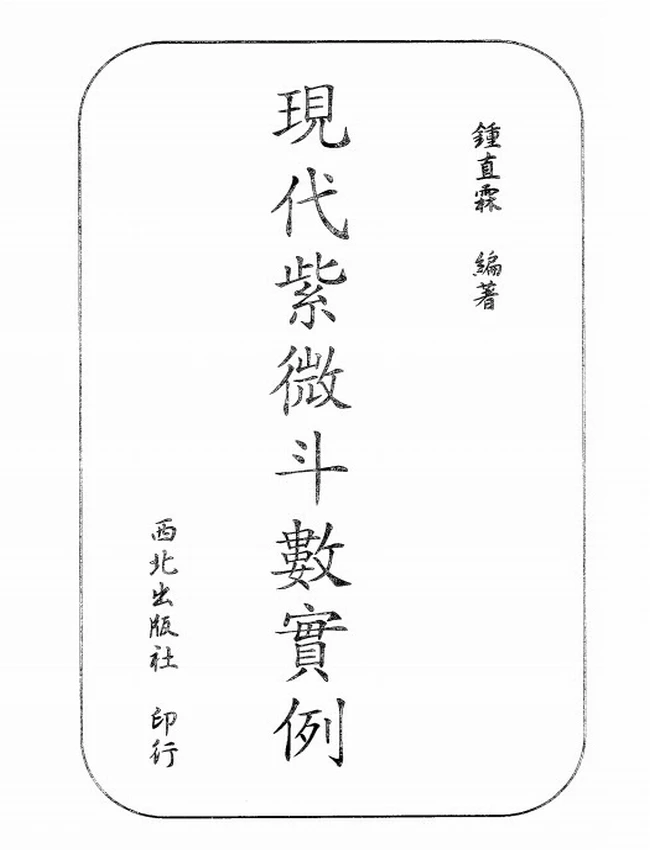 鍾直霖 編著
現代紫微斗數實例
西北出版社 印行